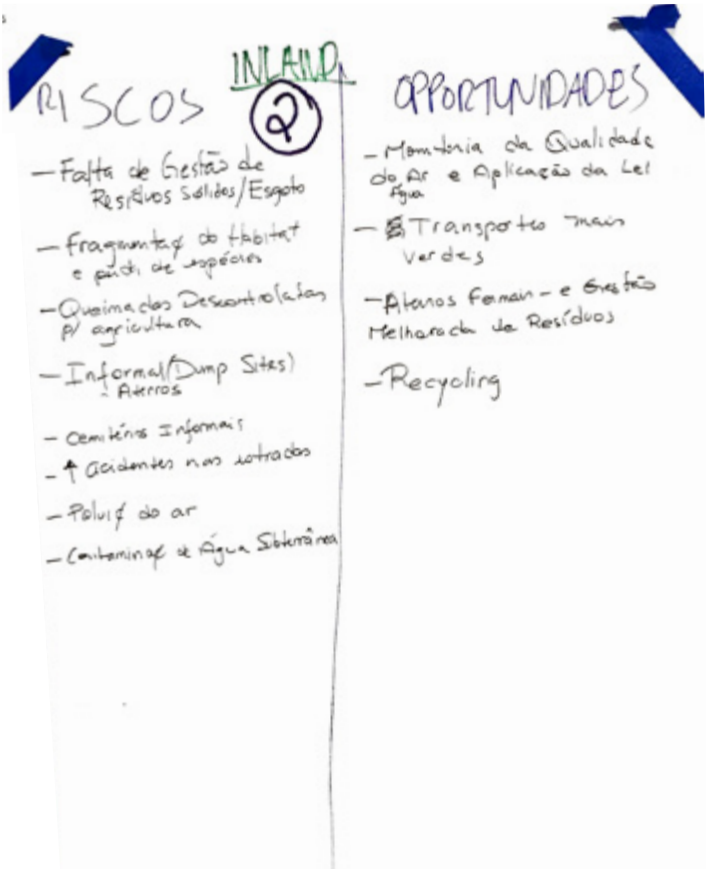 INLAND
2
RISCOS
- Falta de Gestão de
Resíduos Sólidos/Esgoto
- Fragmentaç do Habitat
e de espécies
- Queimadas Descontroladas
p/ agricultura
- Informal (Dump Sites)
- Aterros
- Cemitérios Informais
- ↑ acidentes nas estradas
- Poluiç do ar
- Contaminaç de Água Subterrânea
OPPORTUNIDADES
- da Qualidade
do Ar e Aplicação da Lei
Água
- Transportes mais
verdes
- e Gestão
Melhorada de Resíduos
- Recycling